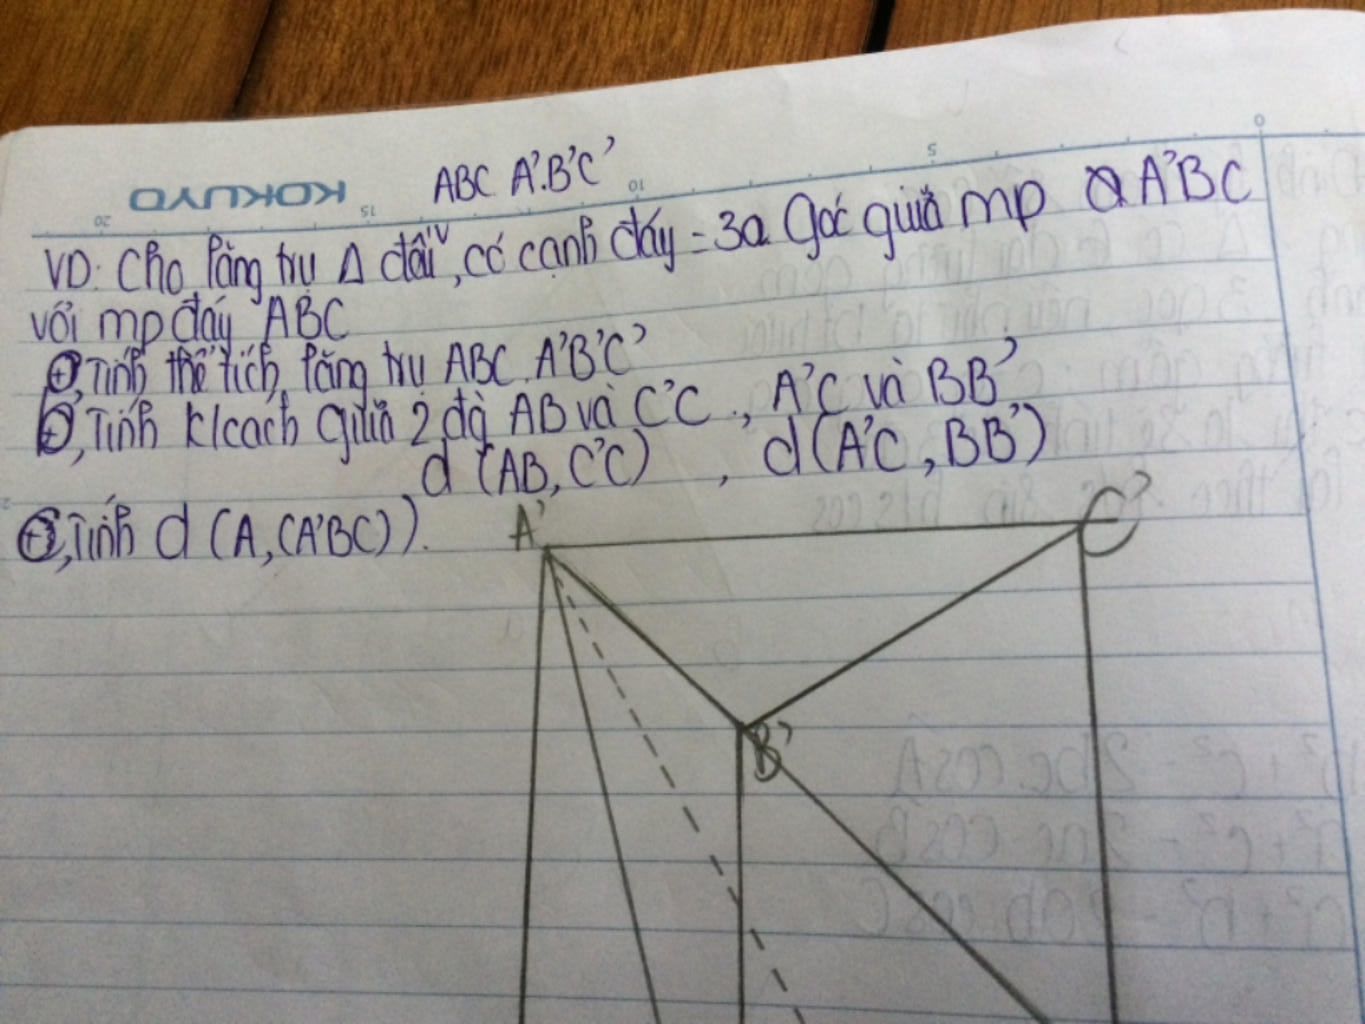 KOKUYO
ABC A'.B'C'
VD: Cho lăng trụ Δ đều, có cạnh đáy = 3a góc giữa mp A'BC
với mp đáy ABC
a, Tính thể tích lăng trụ ABC.A'B'C'
b, Tính k/cách giữa 2 đg AB và C'C, A'C và BB'
d (AB, C'C) , d(A'C, BB')
c, Tính d (A, (A'BC)).
A'
C'
B'
0
5
10
15
20